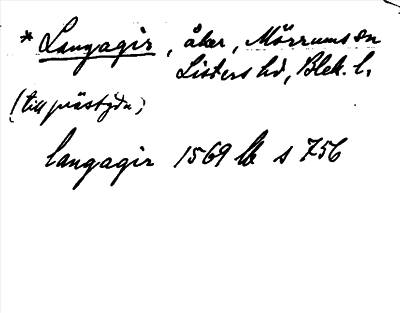 * Langagir, åker, Mörrums sn
Listers hd, Blek. l.
(till prästgdn)
langagir 1569 lb s 756